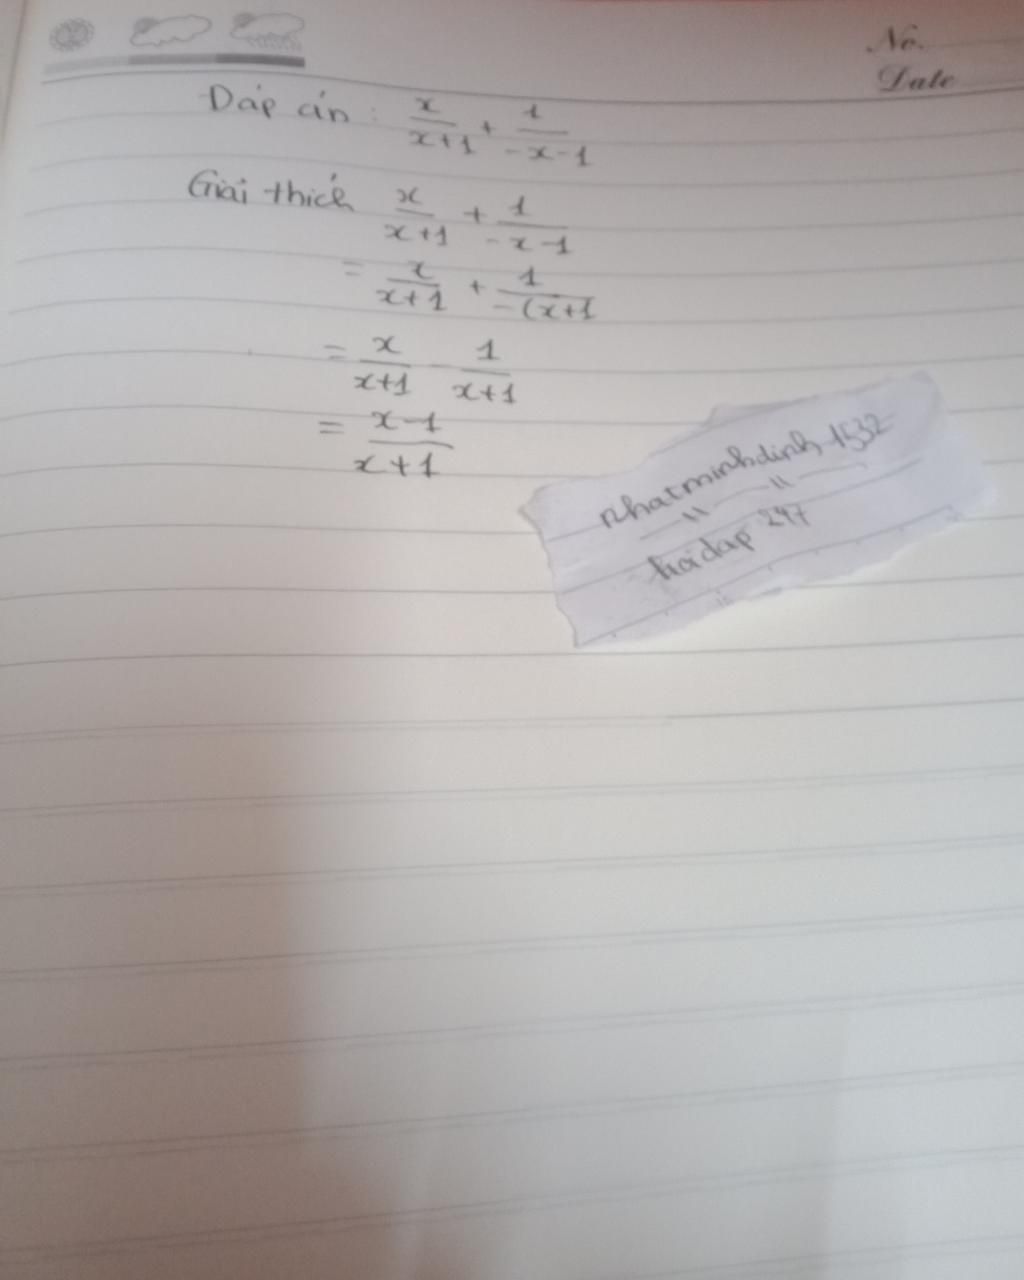 No.
Date
Đáp án : x/(x+1) + 1/(-x-1)
Giải thích x/(x+1) + 1/(-x-1)
= x/(x+1) + 1/(-(x+1
= x/(x+1) - 1/(x+1)
= (x-1)/(x+1)
nhatminhdinh 1532
hoidap 247